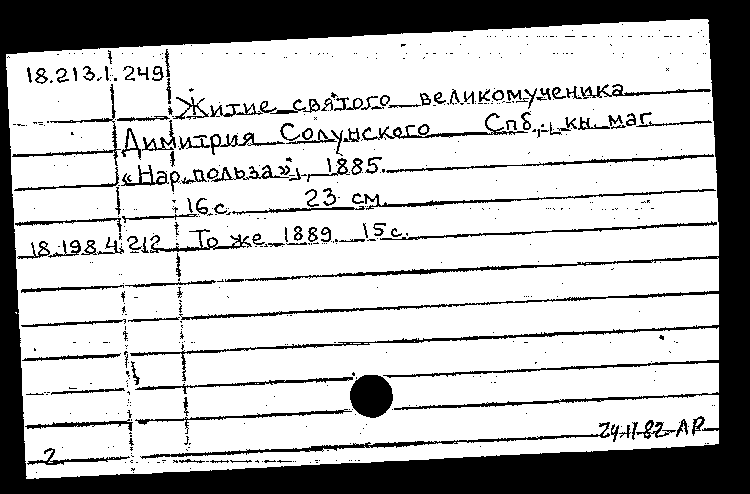 18.213.1.249
Житие святого великомученика
Димитрия Солунского Спб., кн. маг.
«Нар. польза», 1885.
16 с. 23 см.
18.198.4.212 То же 1889. 15 с.
24.II.82 АР
2